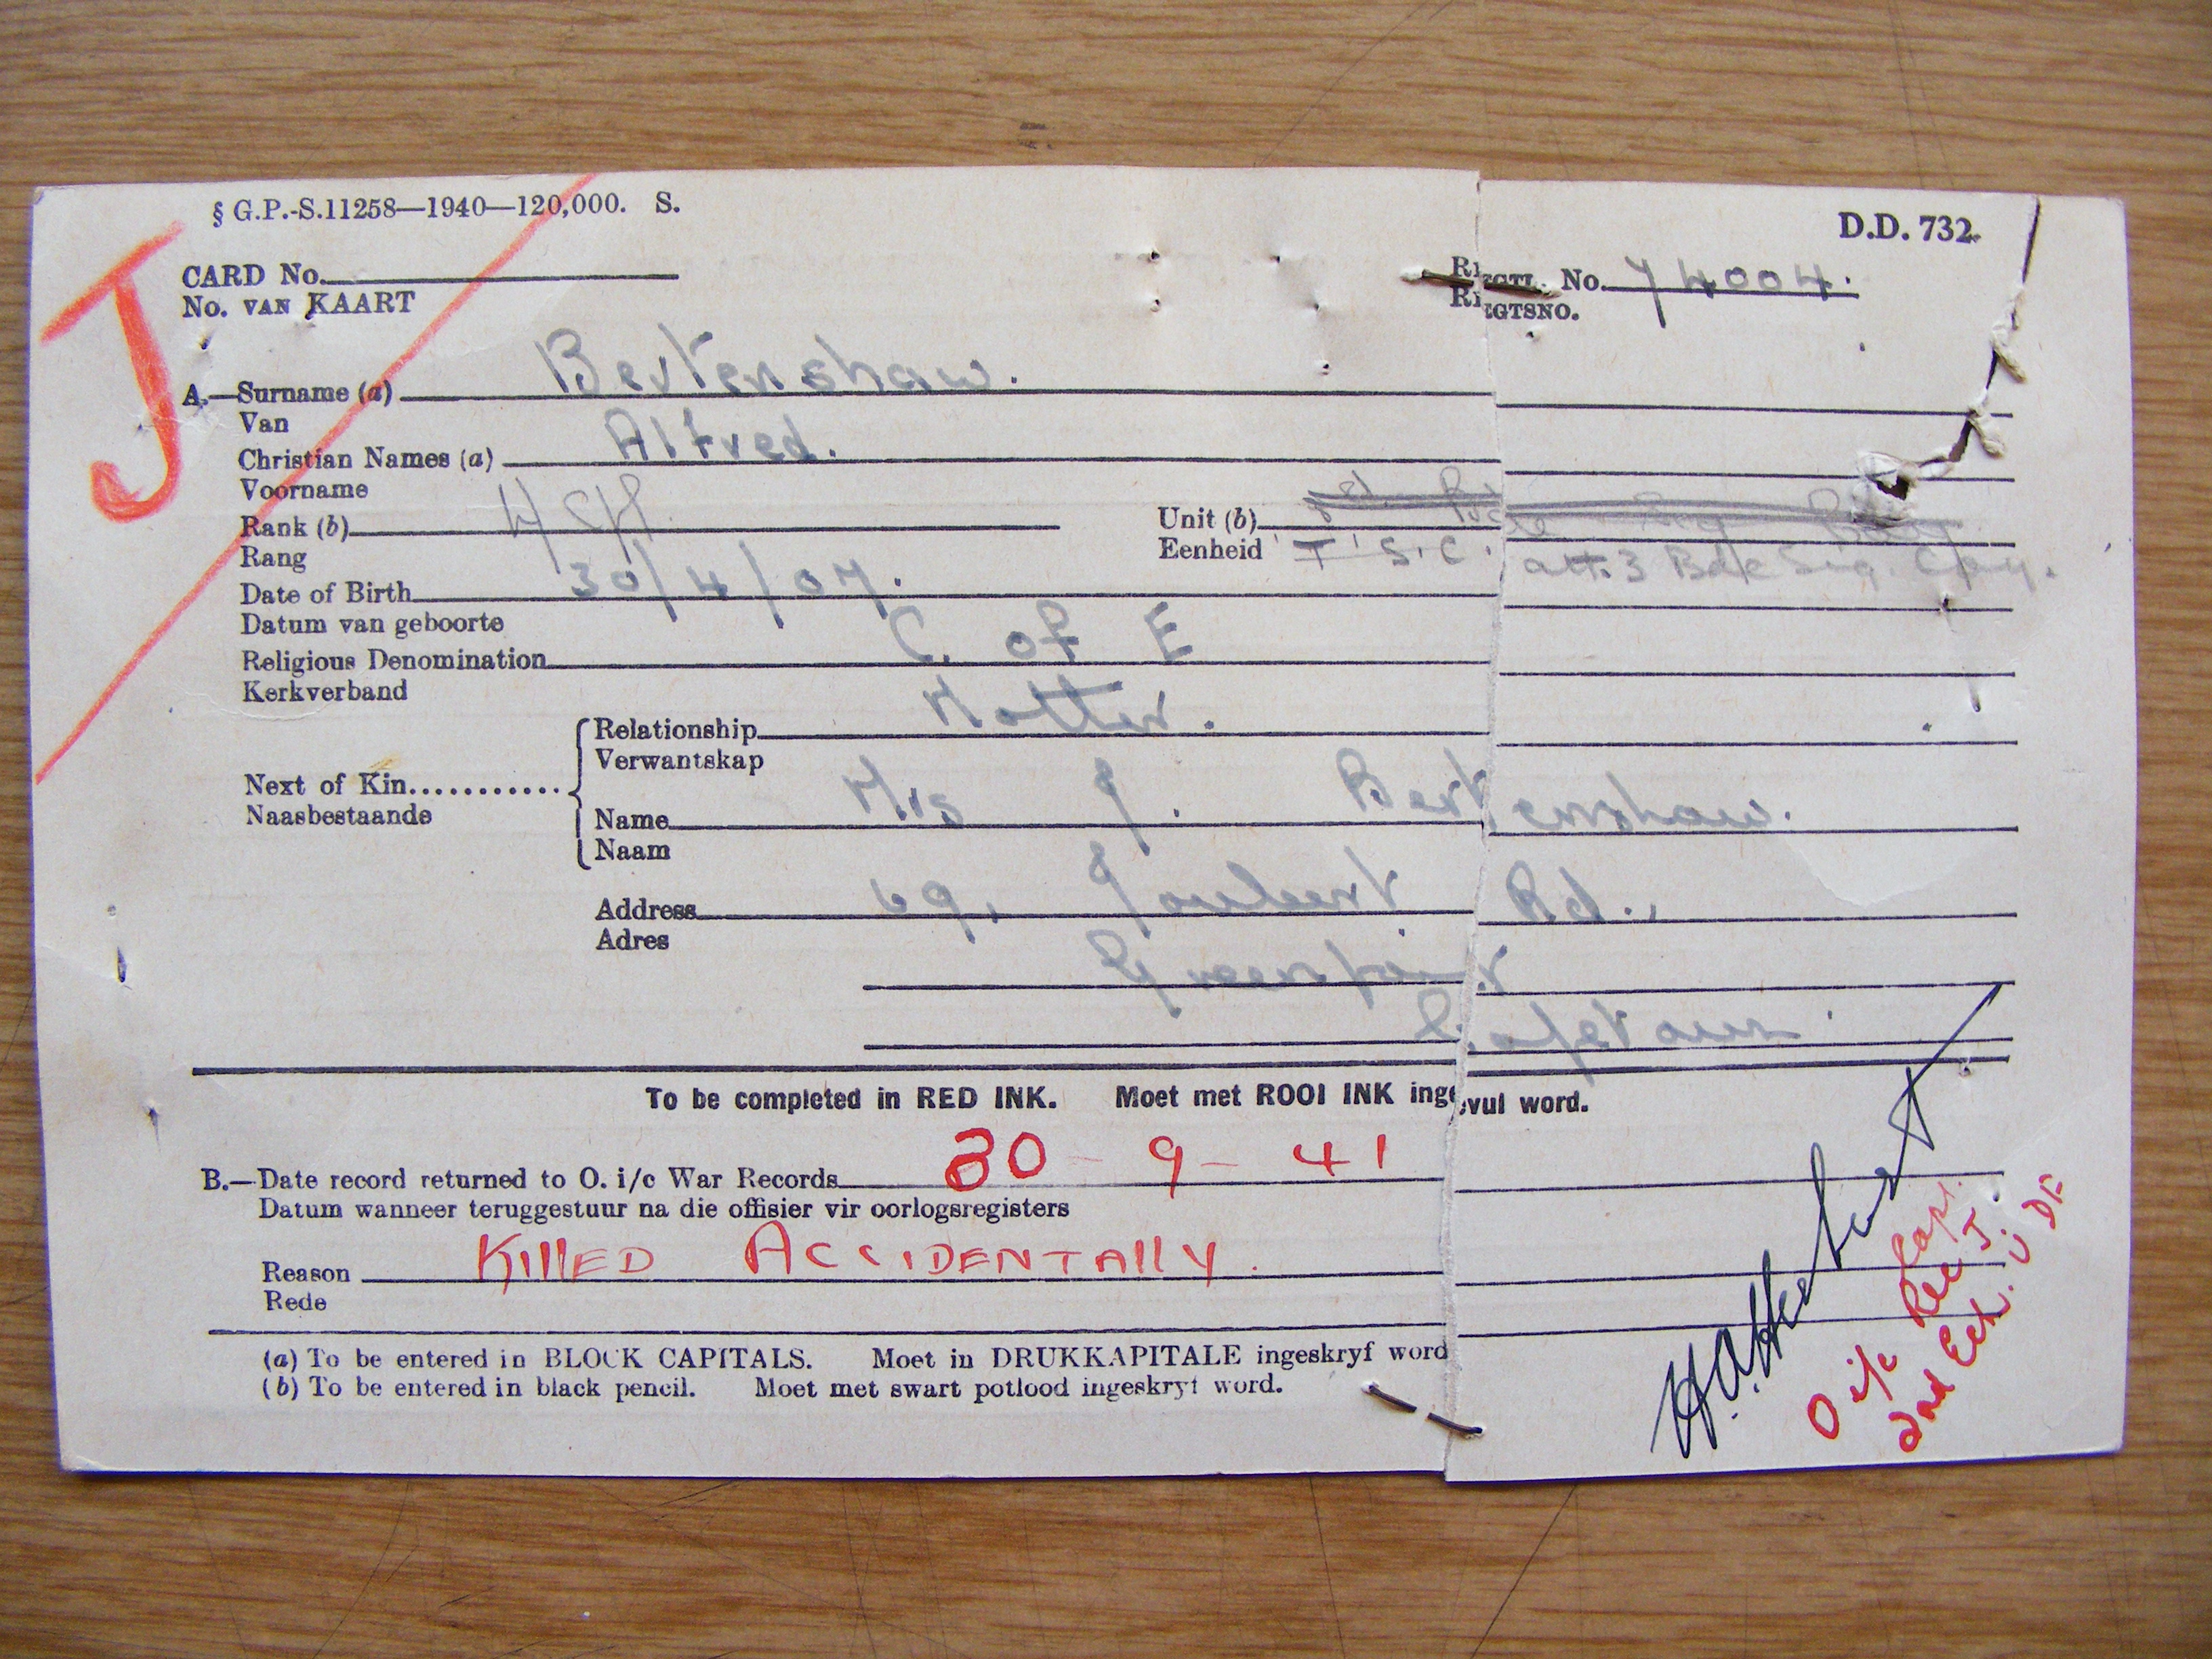 § G.P.-S.11258—1940—120,000. S.
D.D. 732.
J
CARD No.
No. VAN KAART
REGTL. No. 74004.
REGTSNO.
A.—Surname (a) Bertenshaw.
Van
Christian Names (a) Alfred.
Voorname
Rank (b)
Rang
Unit (b) 1st Bde Sig Coy
Eenheid T.S.C. att. 3 Bde Sig. Coy.
Date of Birth 30/4/07.
Datum van geboorte
Religious Denomination C. of E
Kerkverband
Next of Kin
Naasbestaande
Relationship Mother.
Verwantskap
Name Mrs J. Bertenshaw.
Naam
Address 69, Joubert Rd.,
Adres
Greenpoint
Capetown.
To be completed in RED INK. Moet met ROOI INK ingevul word.
B.—Date record returned to O. i/c War Records 30-9-41
Datum wanneer teruggestuur na die offisier vir oorlogsregisters
Reason KillED ACCIDENTAllY.
Rede
(a) To be entered in BLOCK CAPITALS. Moet in DRUKKAPITALE ingeskryf word
(b) To be entered in black pencil. Moet met swart potlood ingeskryf word.
Capt.
O i/c Rec J.
2nd Ech. U DF